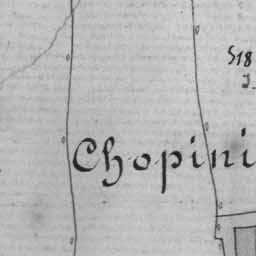 518
Chopini